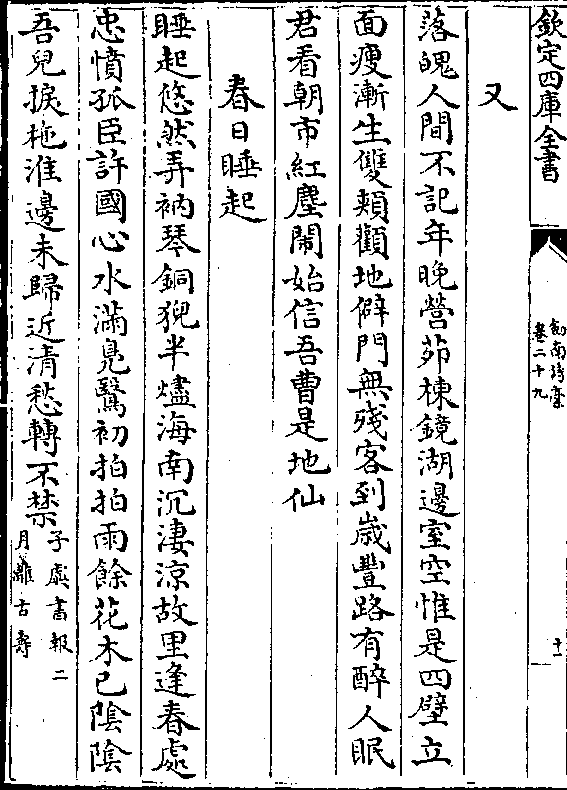 欽定四庫全書
劔南詩稾
卷二十九
十一
又
落魄人間不記年晚營茆棟鏡湖邊室空惟是四壁立
面瘦漸生雙頰顴地僻門無殘客到歳豐路有醉人眠
君看朝市紅塵閙始信吾曹是地仙
春日睡起
睡起悠然弄衲琴銅猊半燼海南沉淒涼故里逢春處
忠憤孤臣許國心水滿鳬鷖初拍拍雨餘花木已陰陰
吾兒捩柂淮邊未歸近清愁轉不禁
子虡書報二
月離古壽